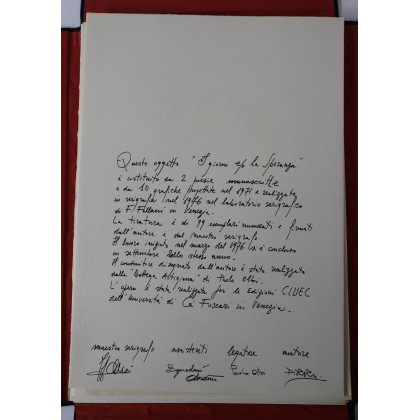 Questo oggetto "I giorni e/o la Speranza"
è costituito da 2 poesie manoscritte
e da 10 grafiche progettate nel 1971 e realizzate
in serigrafia nel 1976 nel laboratorio serigrafico
di F. Fullani in Venezia.
La tiratura è di 99 esemplari numerati e firmati
dall'autore e dal maestro serigrafo.
Il lavoro iniziato nel marzo del 1976 si è concluso
in settembre dello stesso anno.
Il contenitore disegnato dall'autore è stato realizzato
dalla "Bottega Artigiana" di Paolo Olbi.
L'opera è stata realizzata per le Edizioni CLUEC
dell'Università di Ca' Foscari in Venezia.
maestro serigrafo assistenti legatore autore
Paolo Olbi